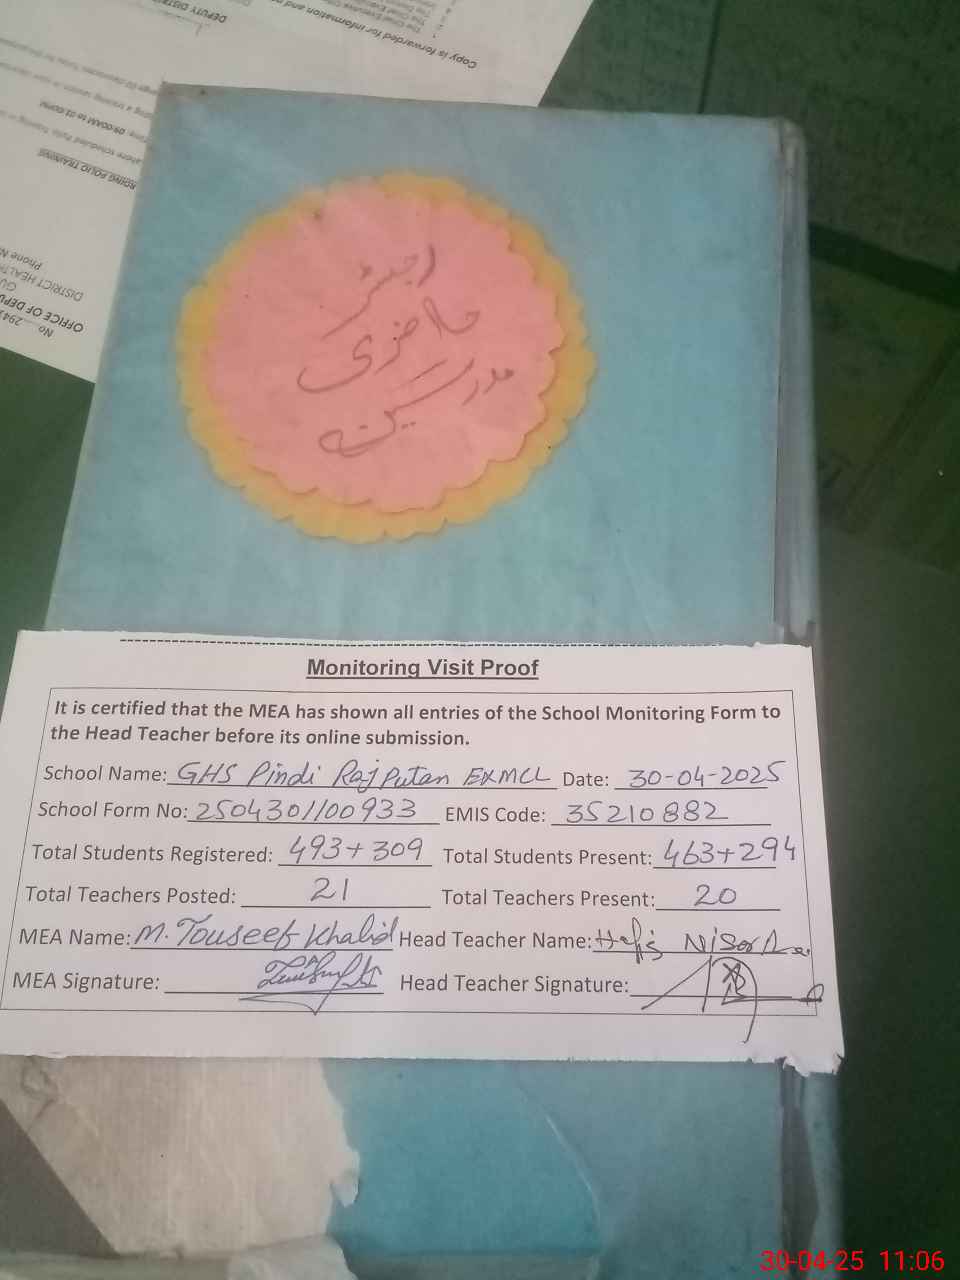 Copy is forwarded for information and
DEPUTY DISTRI
09:00AM to 01:00PM
RDING POLIO TRAINING
Phone N
DISTRICT HEALTH
OFFICE OF DEPU
No 294
رجسٹر
حاضری
مدرسین
Monitoring Visit Proof
It is certified that the MEA has shown all entries of the School Monitoring Form to
the Head Teacher before its online submission.
School Name: GHS Pindi Rajputan EXMCL Date: 30-04-2025
School Form No: 2504301100933 EMIS Code: 35210882
Total Students Registered: 493+309 Total Students Present: 463+294
Total Teachers Posted: 21 Total Teachers Present: 20
MEA Name: M. Touseef Khalid Head Teacher Name: Hafiz Nisar
MEA Signature: Head Teacher Signature:
30-04-25 11:06